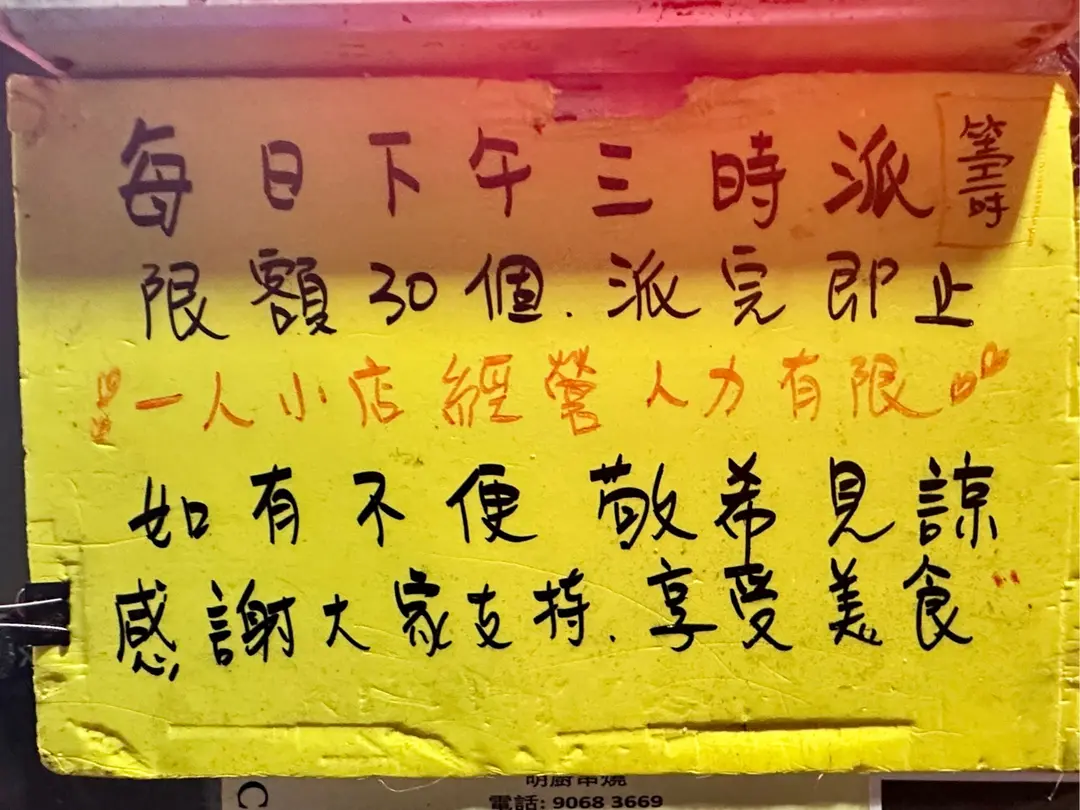 每日下午三時派籌
限額30個.派完即止
一人小店經營人力有限
如有不便敬希見諒
感謝大家支持.享受美食
明廚串燒
電話: 9068 3669
C